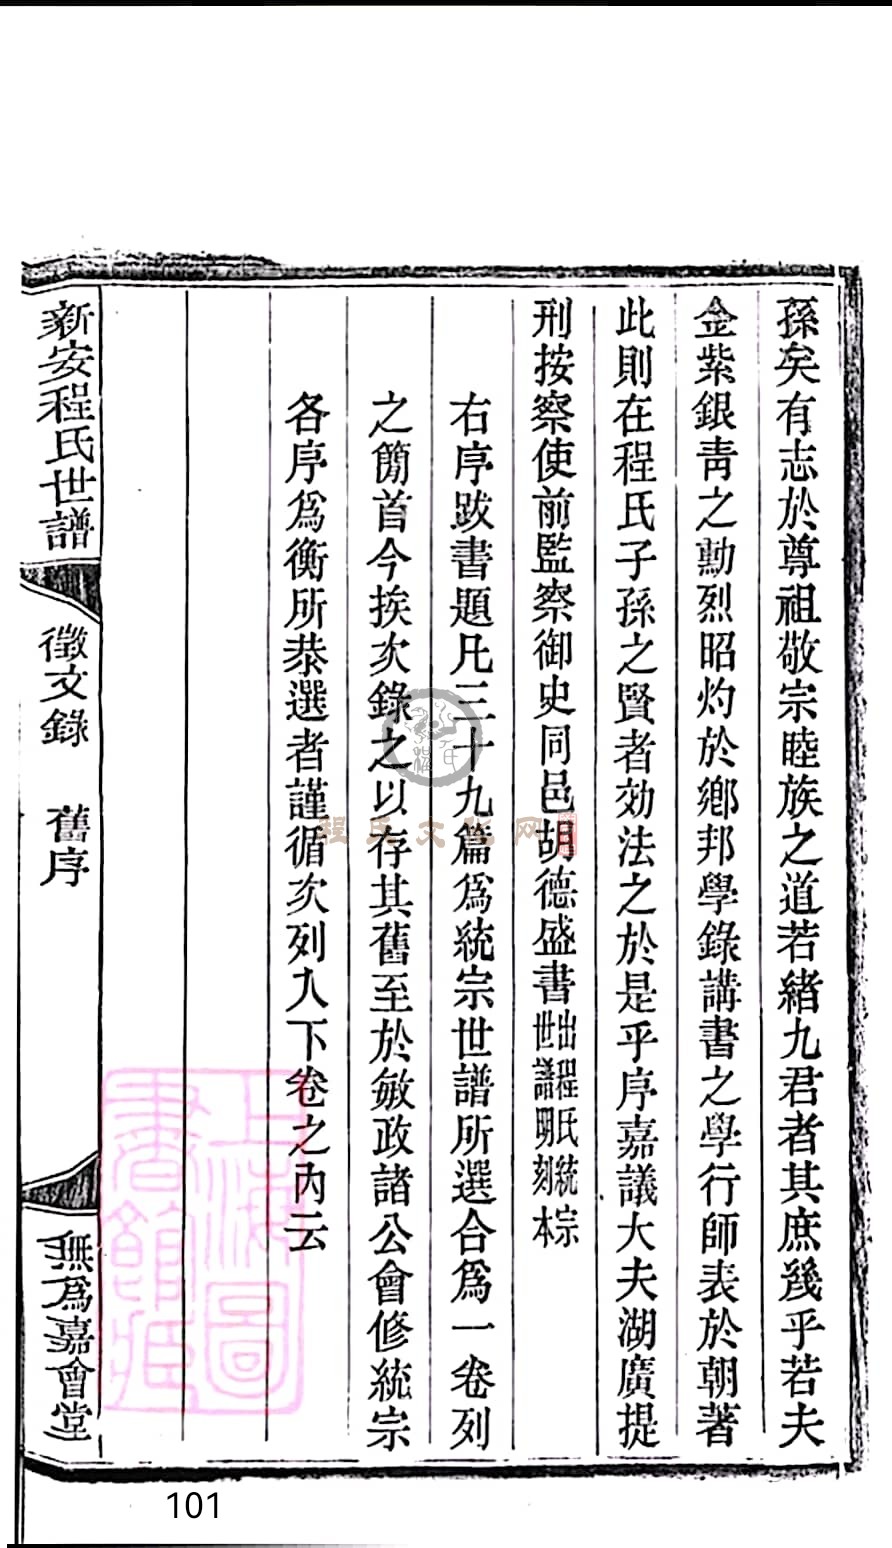 孫矣有志於尊祖敬宗睦族之道若緒九君者其庶幾乎若夫
金紫銀青之勳烈昭灼於鄉邦學錄講書之學行師表於朝著
此則在程氏子孫之賢者効法之於是乎序嘉議大夫湖廣提
刑按察使前監察御史同邑胡德盛書出程氏統宗世譜明刻本
右序跋書題凡三十九篇為統宗世譜所選合為一卷列
之簡首今挨次錄之以存其舊至於敏政諸公會修統宗
各序為衡所恭選者謹循次列入下卷之內云
新安程氏世譜
徵文錄 舊序
無為嘉會堂
上海圖書館藏
程氏文化网
101